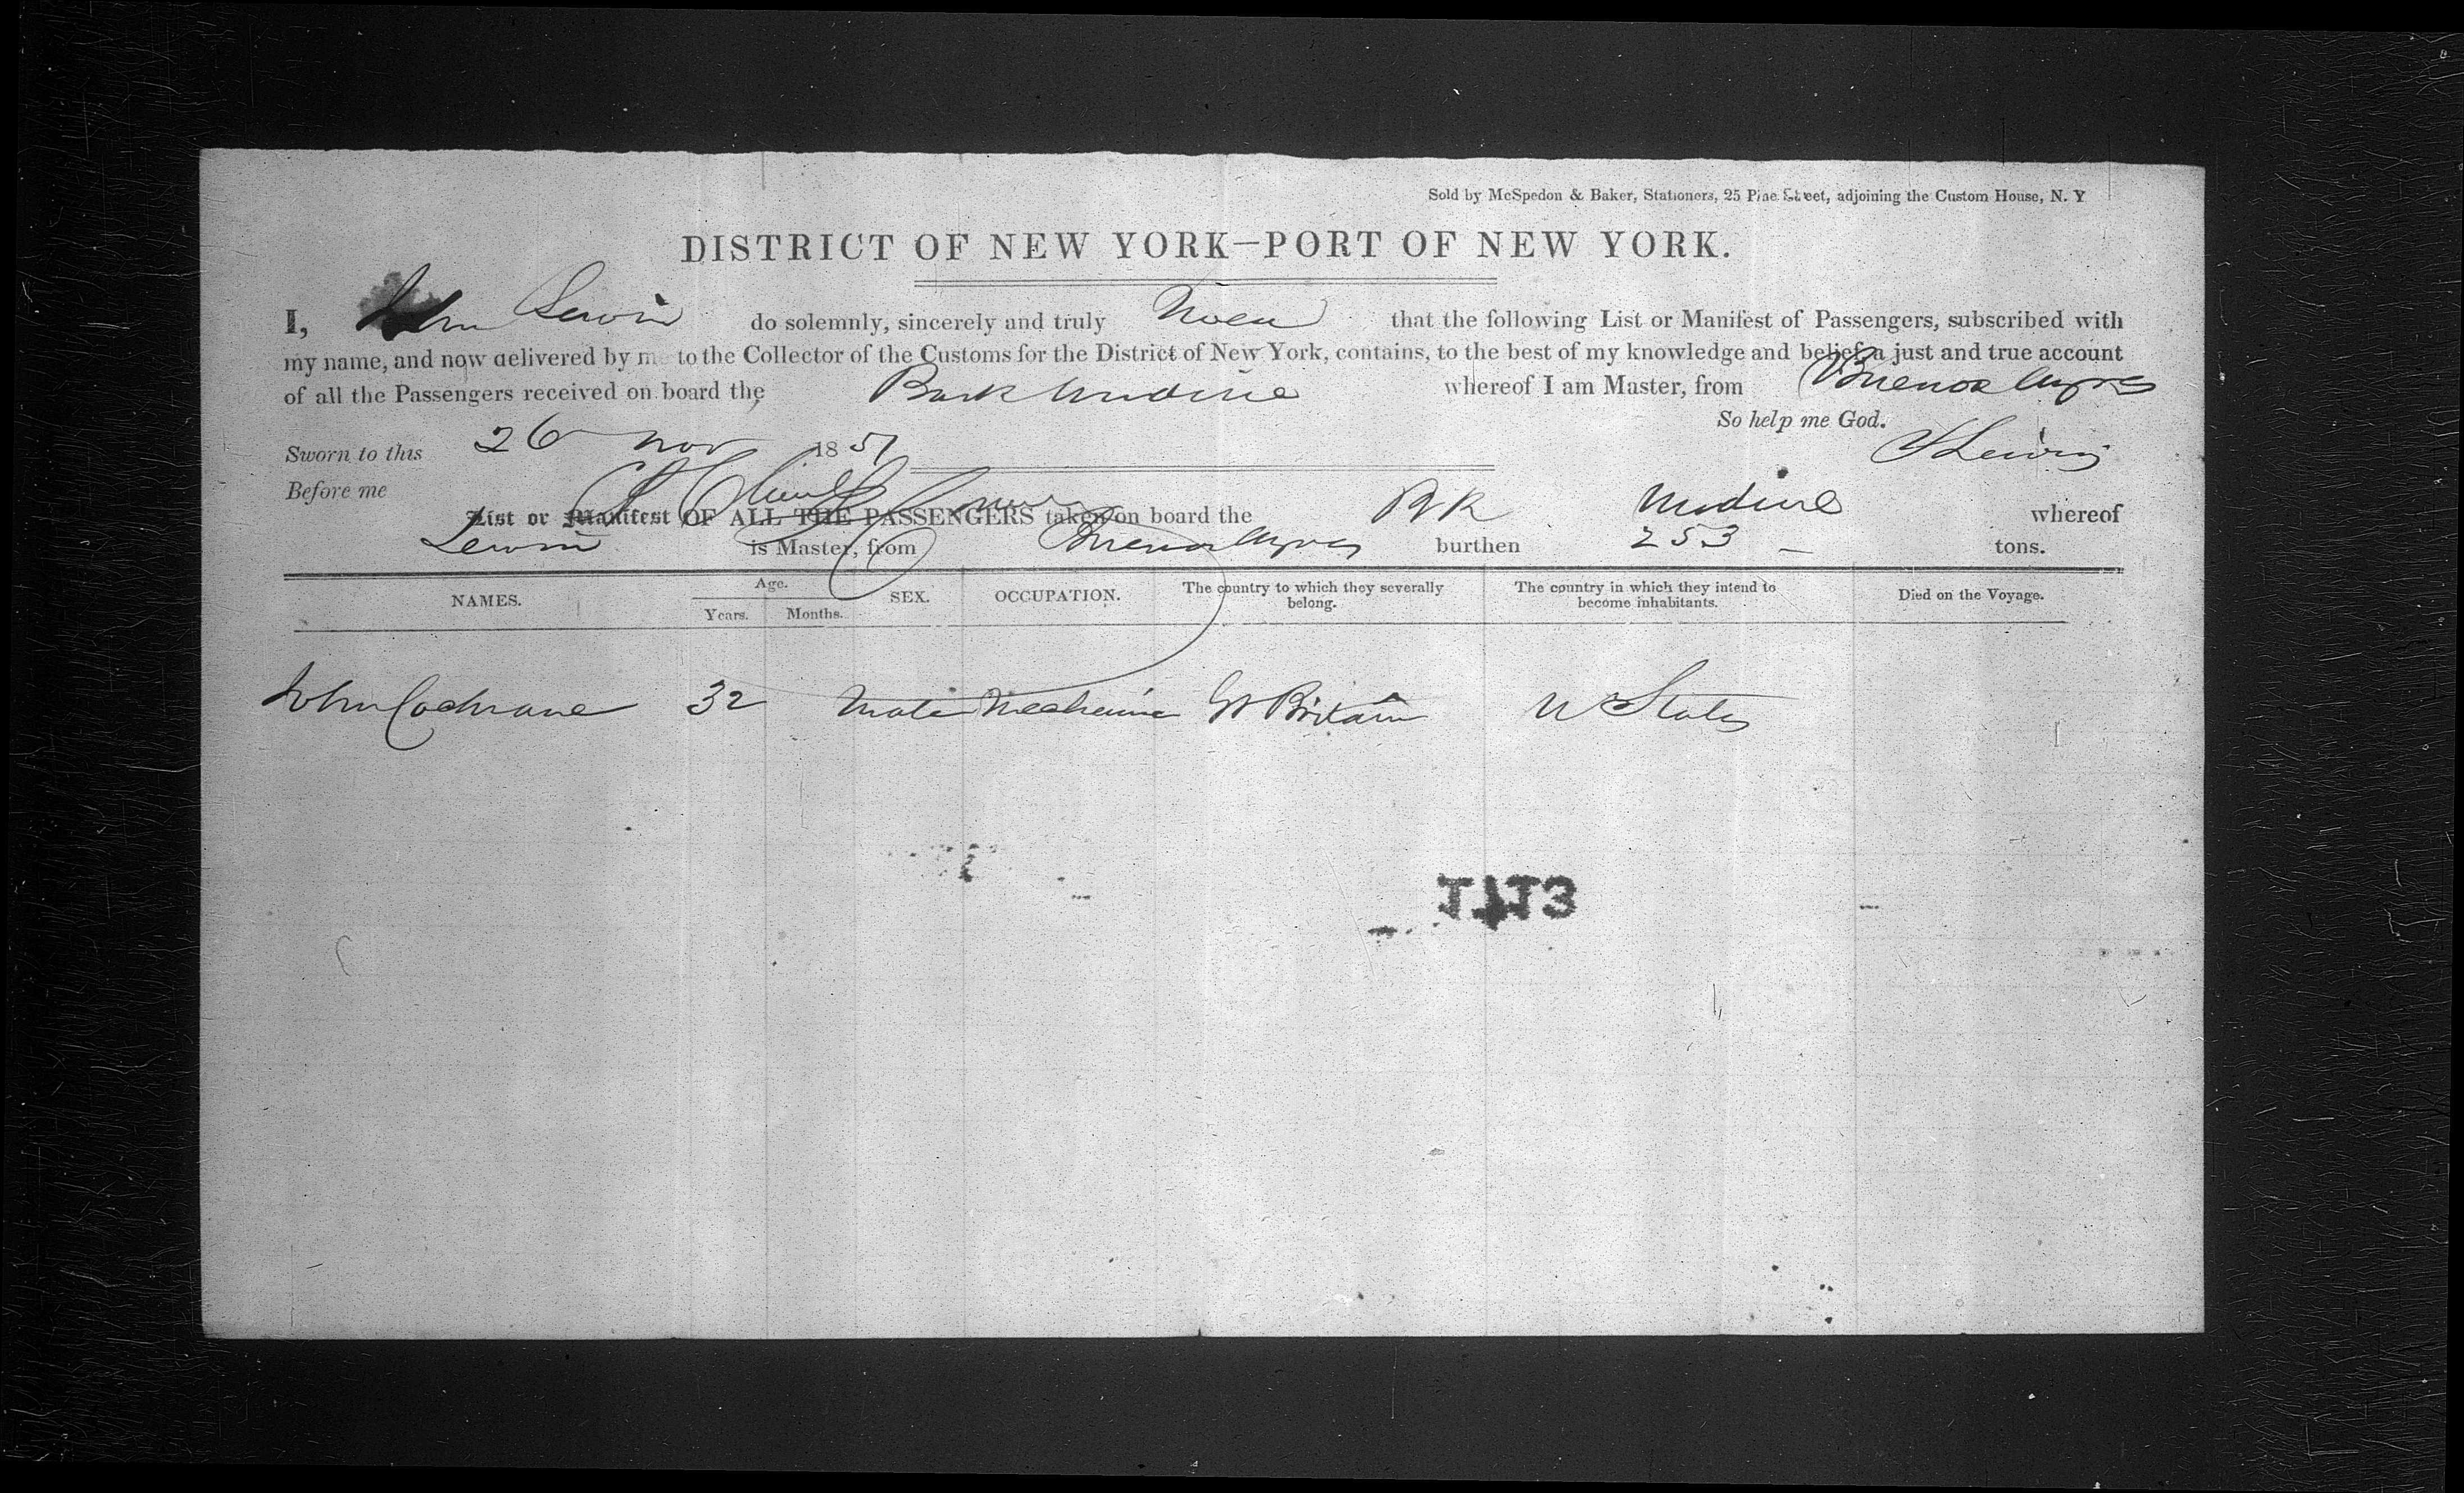 Sold by McSpedon & Baker, Stationers, 25 Pine Street, adjoining the Custom House, N. Y
DISTRICT OF NEW YORK—PORT OF NEW YORK.
I, John Lewis do solemnly, sincerely and truly Swear that the following List or Manifest of Passengers, subscribed with
my name, and now delivered by me to the Collector of the Customs for the District of New York, contains, to the best of my knowledge and belief, a just and true account
of all the Passengers received on board the Bark Undine whereof I am Master, from Buenos Ayres
So help me God.
Sworn to this 26 Nov 1851
J Lewis
Before me
List or Manifest OF ALL THE PASSENGERS taken on board the Bk Undine whereof
Lewis is Master, from Buenos Ayres burthen 253 tons.
NAMES. Age. Years. Months. SEX. OCCUPATION. The country to which they severally belong. The country in which they intend to become inhabitants. Died on the Voyage.
John Cochrane 32 Male Mechanic Gt Britain U States
1713